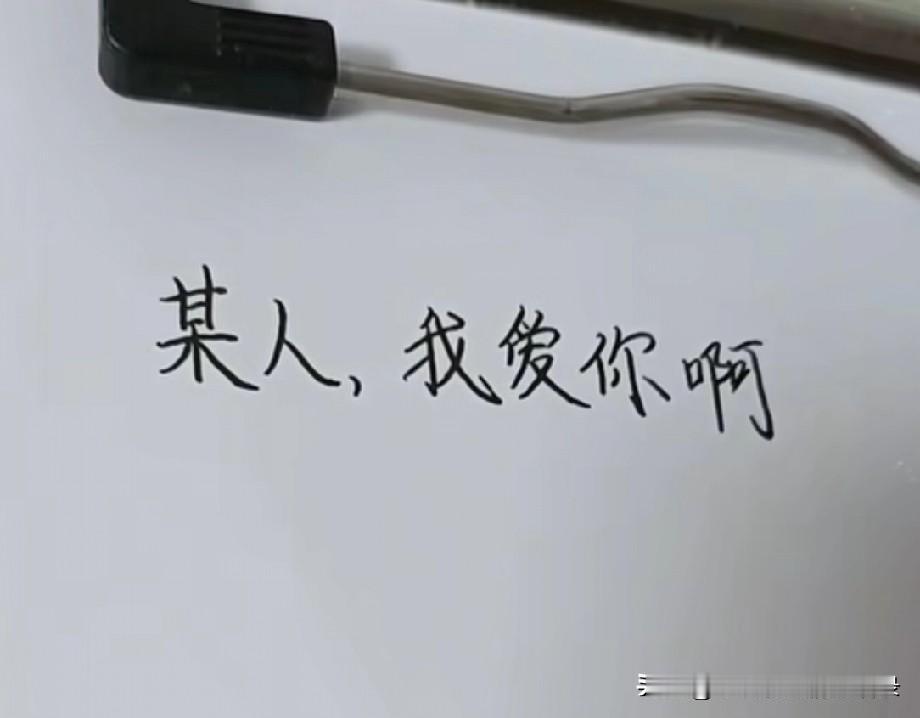 某人,我爱你啊